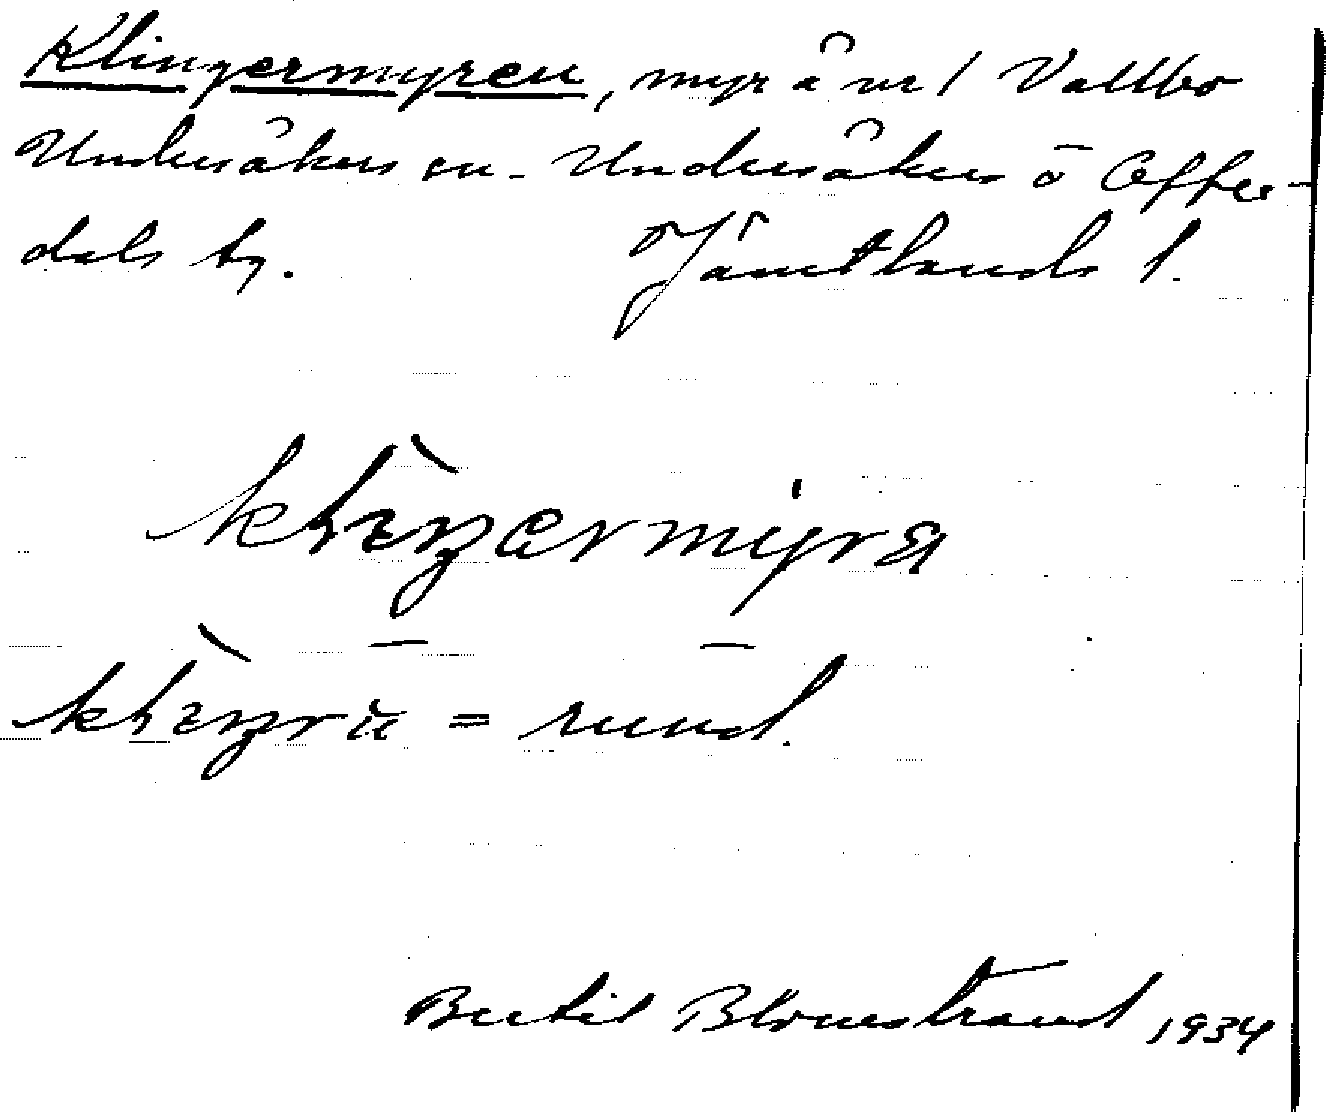 Klingermyren, myr å nr 1 Vallbo
Undersåkers sn. Undersåkers o Offer-
dals tg. Jämtlands l.
= rund.
Bertil Blomstrand 1934